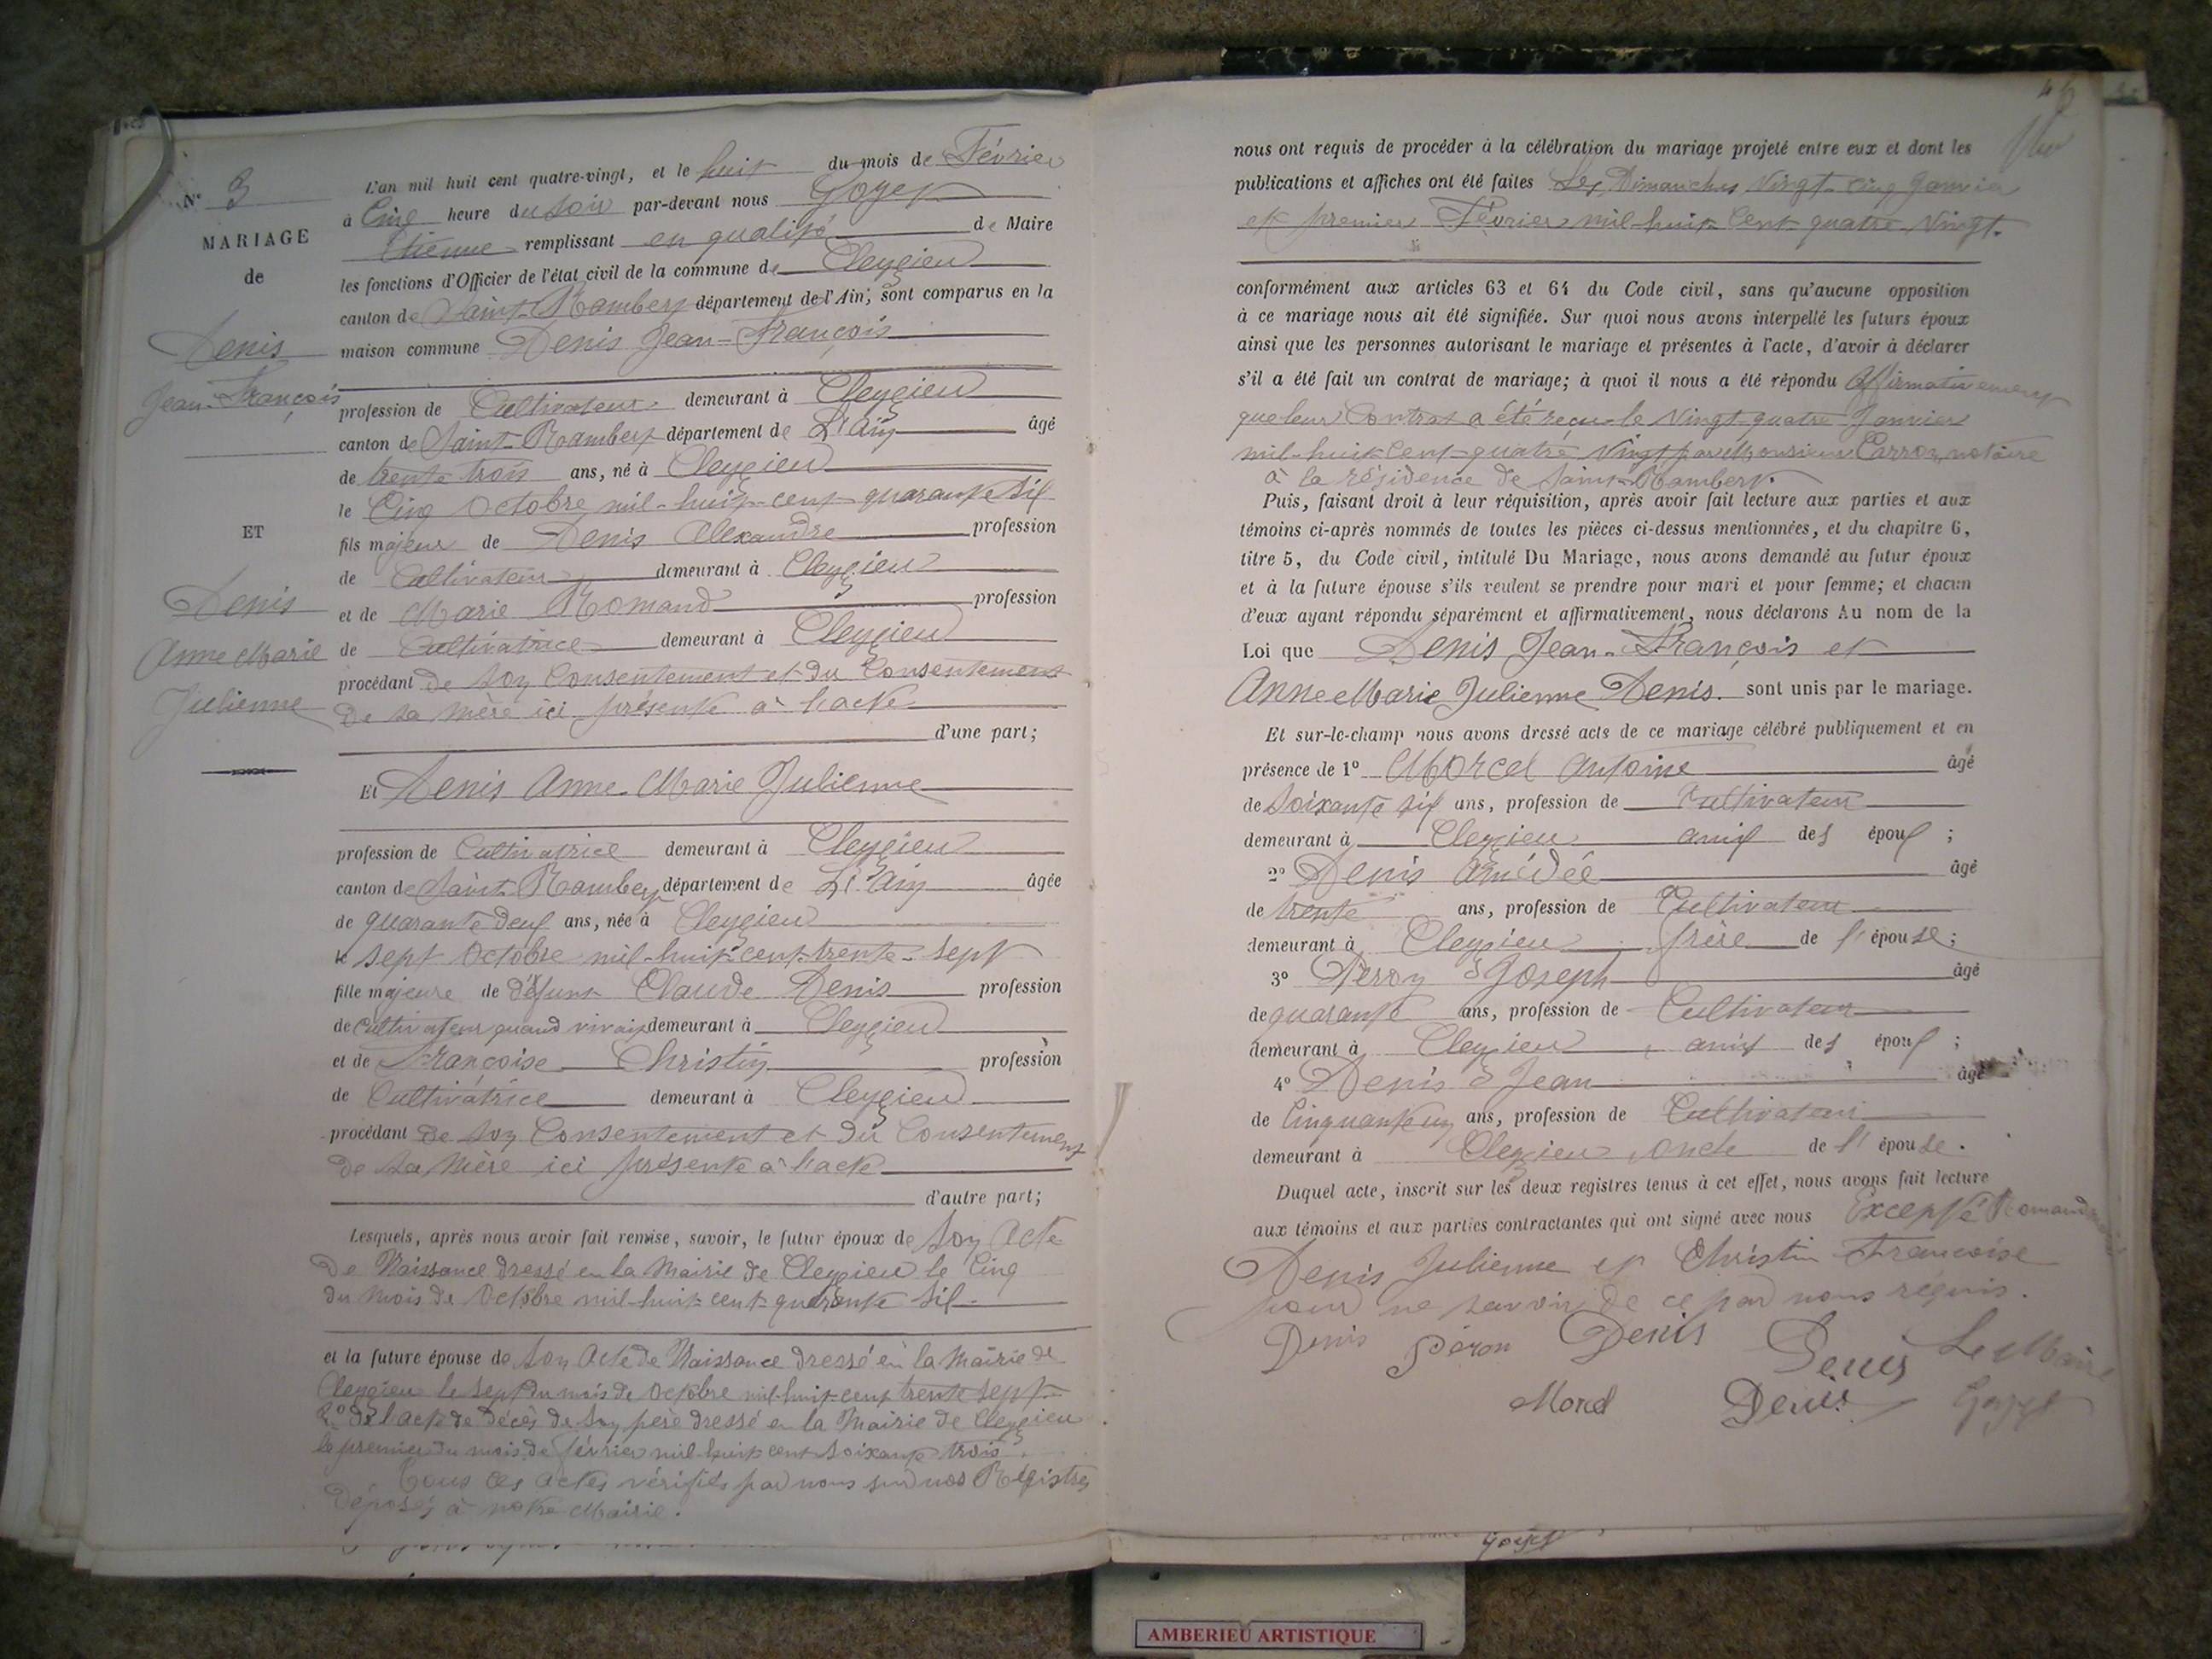 N° 3
MARIAGE
de
Denis
Jean-François
ET
Denis
Anne Marie
Julienne
L'an mil huit cent quatre-vingt, et le huit du mois de Février
à Cinq heure du soir par-devant nous Goyet
Etienne remplissant en qualité de Maire
les fonctions d'Officier de l'état civil de la commune de Cleyzieu
canton de Saint-Rambert département de l'Ain, sont comparus en la
maison commune Denis Jean-François
profession de Cultivateur demeurant à Cleyzieu
canton de Saint-Rambert département de L'Ain âgé
de trente trois ans, né à Cleyzieu
le Cinq Octobre mil-huit-cent-quarante six
fils majeur de Denis Alexandre profession
de Cultivateur demeurant à Cleyzieu
et de Marie Romand profession
de Cultivatrice demeurant à Cleyzieu
procédant de son Consentement et du Consentement
de sa mère ici présente à l'acte
d'une part;
Et Denis Anne-Marie Julienne
profession de Cultivatrice demeurant à Cleyzieu
canton de Saint-Rambert département de L'Ain âgée
de quarante deux ans, née à Cleyzieu
le sept Octobre mil-huit-cent-trente-sept
fille majeure de défunt Claude Denis profession
de Cultivateur quand vivait demeurant à Cleyzieu
et de Françoise Christin profession
de Cultivatrice demeurant à Cleyzieu
procédant de son Consentement et du Consentement
de sa Mère ici présente à l'acte
d'autre part;
Lesquels, après nous avoir fait remise, savoir, le futur époux de son Acte
de Naissance dressé en la Mairie de Cleyzieu le Cinq
du mois de Octobre mil-huit-cent-quarante six
et la future épouse de son Acte de Naissance dressé en la Mairie de
Cleyzieu le sept du mois de Octobre mil-huit-cent trente sept
2° de l'acte de décès de son père dressé en la Mairie de Cleyzieu
le premier du mois de février mil-huit cent soixante trois.
Tous ces actes vérifiés par nous sur nos Registres
déposés à notre Mairie.
nous ont requis de procéder à la célébration du mariage projeté entre eux et dont les
publications et affiches ont été faites Les Dimanches Vingt-Cinq Janvier
et premier Février mil-huit Cent-quatre-Vingt.
conformément aux articles 63 et 64 du Code civil, sans qu'aucune opposition
à ce mariage nous ait été signifiée. Sur quoi nous avons interpellé les futurs époux
ainsi que les personnes autorisant le mariage et présentes à l'acte, d'avoir à déclarer
s'il a été fait un contrat de mariage; à quoi il nous a été répondu Affirmativement
que leur Contrat a été reçu le Vingt-quatre Janvier
mil-huit Cent-quatre Vingt par Monsieur Carron, notaire
à la résidence de Saint-Rambert.
Puis, faisant droit à leur réquisition, après avoir fait lecture aux parties et aux
témoins ci-après nommés de toutes les pièces ci-dessus mentionnées, et du chapitre 6,
titre 5, du Code civil, intitulé Du Mariage, nous avons demandé au futur époux
et à la future épouse s'ils veulent se prendre pour mari et pour femme; et chacun
d'eux ayant répondu séparément et affirmativement, nous déclarons Au nom de la
Loi que Denis Jean-François et
Anne Marie Julienne Denis. sont unis par le mariage.
Et sur-le-champ nous avons dressé acte de ce mariage célébré publiquement et en
présence de 1° Morcel Antoine âgé
de soixante six ans, profession de Cultivateur
demeurant à Cleyzieu amis des époux ;
2° Denis Amédée âgé
de trente ans, profession de Cultivateur
demeurant à Cleyzieu frère de l'épouse;
3° Peron Joseph âgé
de quarante ans, profession de Cultivateur
demeurant à Cleyzieu, amis des époux ;
4° Denis Jean âgé
de Cinquante un ans, profession de Cultivateur
demeurant à Cleyzieu, oncle de l'épouse.
Duquel acte, inscrit sur les deux registres tenus à cet effet, nous avons fait lecture
aux témoins et aux parties contractantes qui ont signé avec nous Excepté Romand
Denis Julienne et Christin Françoise
pour ne savoir de ce par nous requis.
Denis Péron Denis Denis Le Maire
Morcel Denis Goyet
Goyet
AMBERIEU ARTISTIQUE